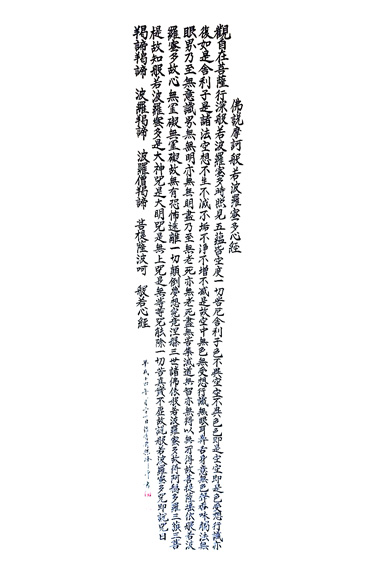 佛説摩訶般若波羅蜜多心経
觀自在菩薩行深般若波羅蜜多時照見五蘊皆空度一切苦厄舍利子色不異空空不異色色即是空空即是色受想行識亦
復如是舍利子是諸法空想不生不滅不垢不浄不増不減是故空中無色無受想行識無眼耳鼻舌身意無色聲香味觸法無
眼界乃至無意識界無無明亦無無明盡乃至無老死亦無老死盡無苦集滅道無智亦無得以無所得故菩提薩埵依般若波
羅蜜多故心無罣礙無罣礙故無有恐怖遠離一切顛倒夢想究竟涅槃三世諸佛依般若波羅蜜多故得阿耨多羅三藐三菩
提故知般若波羅蜜多是大神呪是大明呪是無上呪是無等等呪能除一切苦真實不虚故説般若波羅蜜多呪即説呪曰
羯諦羯諦 波羅羯諦 波羅僧羯諦 菩提薩婆訶 般若心経
平成十六年